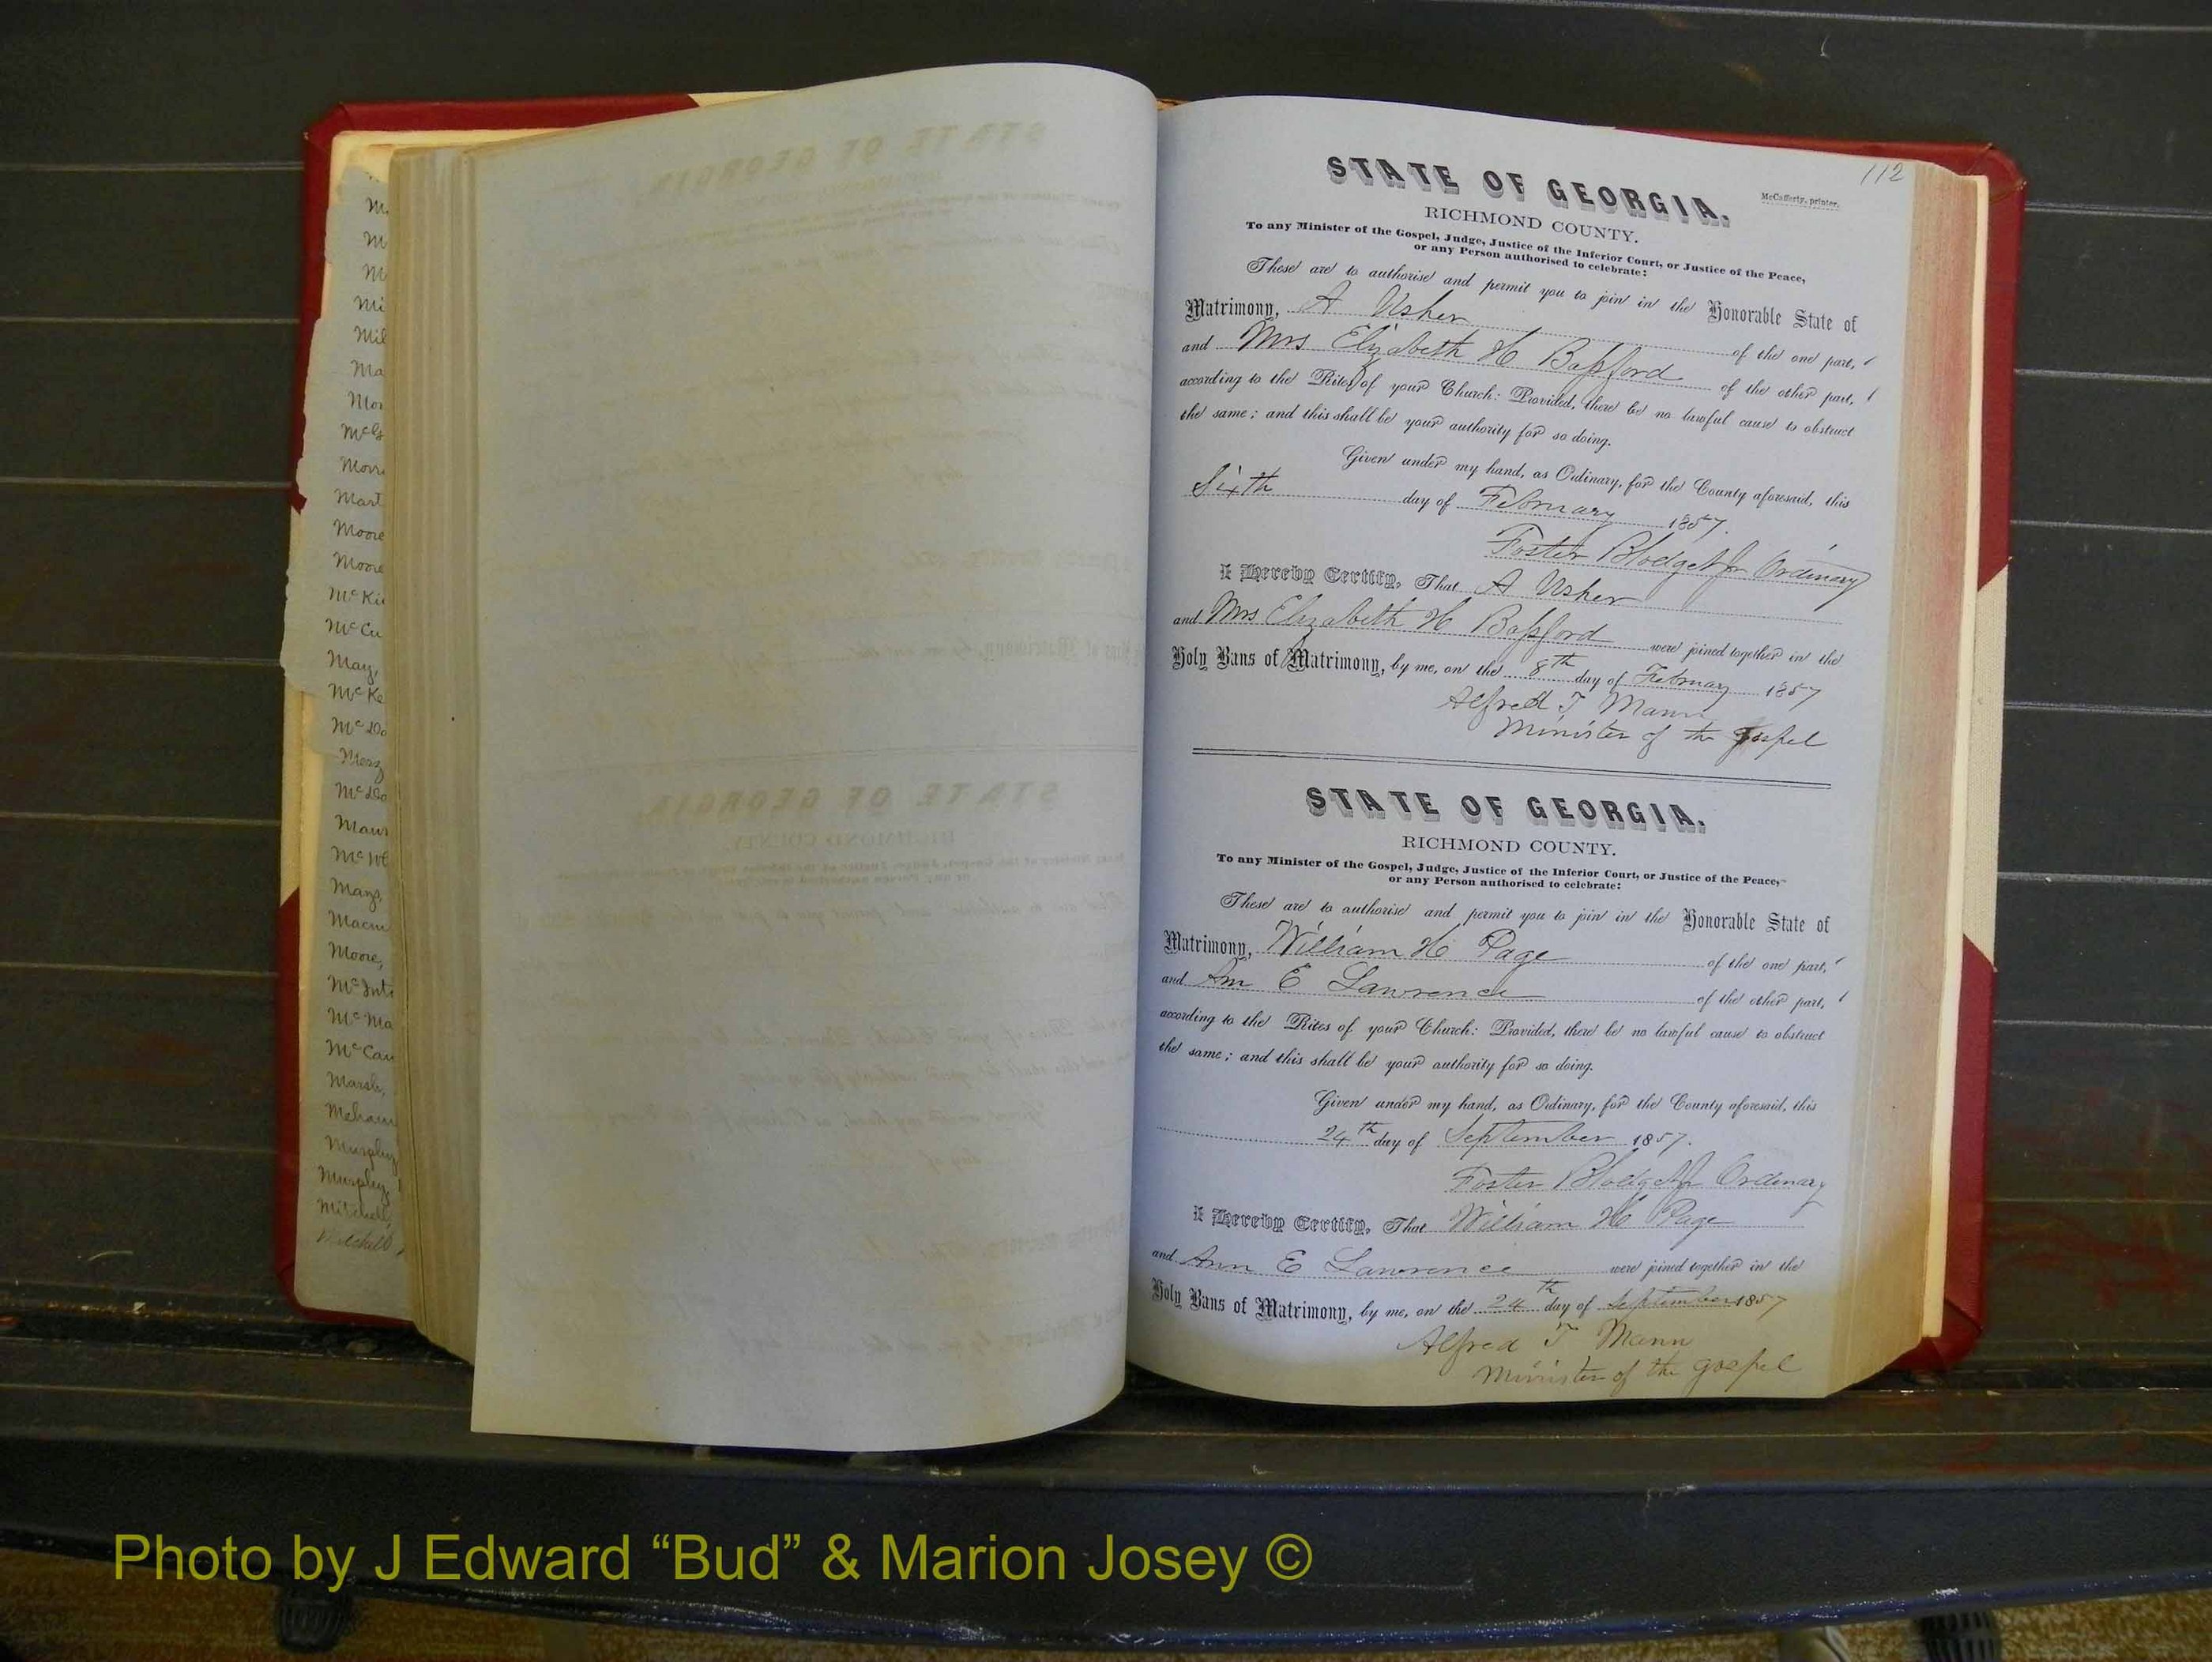 M
M
M
Mi
Mil
Ma
Mor
McG
Morr
Mart
Moore
Moore
McKi
McCu
May,
McKe
McDo
McDo
Maur
Mang
Moore,
McInt
McMa
McCau
Marsh,
Murphy
Murphy,
Mitchell,
Mitchell
112
McCafferty, printer.
STATE OF GEORGIA.
RICHMOND COUNTY.
To any Minister of the Gospel, Judge, Justice of the Inferior Court, or Justice of the Peace,
or any Person authorised to celebrate:
These are to authorise and permit you to join in the Honorable State of
Matrimony, A Usher of the one part,
and Mrs Elizabeth H Bassford of the other part,
according to the Rites of your Church: Provided, there be no lawful cause to obstruct
the same; and this shall be your authority for so doing.
Given under my hand, as Ordinary, for the County aforesaid, this
Sixth day of February 1857.
Foster Blodget Jr Ordinary
I Hereby Certify, That A Usher
and Mrs Elizabeth H Bassford were joined together in the
Holy Bans of Matrimony, by me, on the 8th day of February 1857
Alfred T Mann
Minister of the gospel
STATE OF GEORGIA.
RICHMOND COUNTY.
To any Minister of the Gospel, Judge, Justice of the Inferior Court, or Justice of the Peace,
or any Person authorised to celebrate:
These are to authorise and permit you to join in the Honorable State of
Matrimony, William H Page of the one part,
and Ann E Lawrence of the other part,
according to the Rites of your Church: Provided, there be no lawful cause to obstruct
the same; and this shall be your authority for so doing.
Given under my hand, as Ordinary, for the County aforesaid, this
24th day of September 1857.
Foster Blodget Jr Ordinary
I Hereby Certify, That William H Page
and Ann E Lawrence were joined together in the
Holy Bans of Matrimony, by me, on the 24th day of September 1857
Alfred T Mann
Minister of the gospel
Photo by J Edward “Bud” & Marion Josey ©